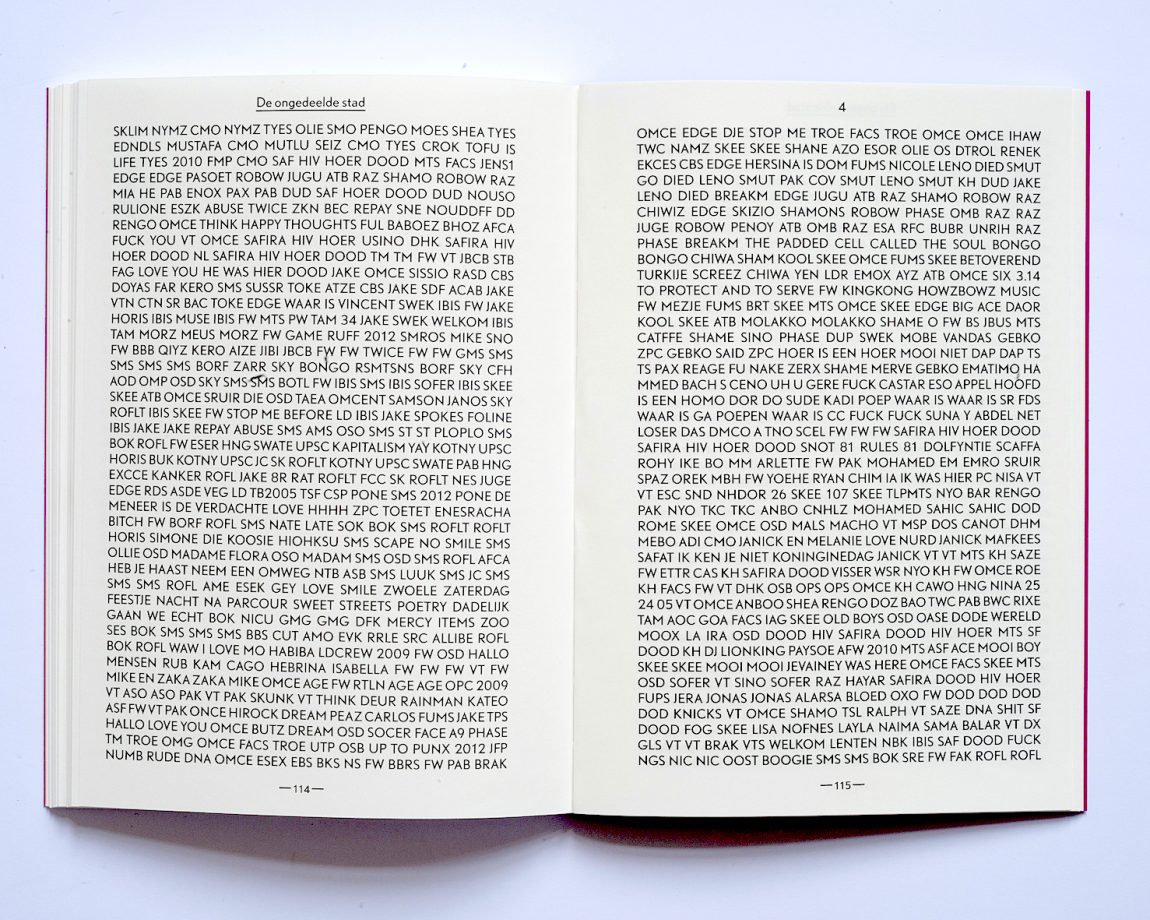 De ongedeelde stad
SKLIM NYMZ CMO NYMZ TYES OLIE SMO PENGO MOES SHEA TYES
EDNDLS MUSTAFA CMO MUTLU SEIZ CMO TYES CROK TOFU IS
LIFE TYES 2010 FMP CMO SAF HIV HOER DOOD MTS FACS JENS1
EDGE EDGE PASOET ROBOW JUGU ATB RAZ SHAMO ROBOW RAZ
MIA HE PAB ENOX PAX PAB DUD SAF HOER DOOD DUD NOUSO
RULIONE ESZK ABUSE TWICE ZKN BEC REPAY SNE NOUDDFF DD
RENGO OMCE THINK HAPPY THOUGHTS FUL BABOEZ BHOZ AFCA
FUCK YOU VT OMCE SAFIRA HIV HOER USINO DHK SAFIRA HIV
HOER DOOD NL SAFIRA HIV HOER DOOD TM TM FW VT JBCB STB
FAG LOVE YOU HE WAS HIER DOOD JAKE OMCE SISSIO RASD CBS
DOYAS FAR KERO SMS SUSSR TOKE ATZE CBS JAKE SDF ACAB JAKE
VTN CTN SR BAC TOKE EDGE WAAR IS VINCENT SWEK IBIS FW JAKE
HORIS IBIS MUSE IBIS FW MTS PW TAM 34 JAKE SWEK WELKOM IBIS
TAM MORZ MEUS MORZ FW GAME RUFF 2012 SMROS MIKE SNO
FW BBB QIYZ KERO AIZE JIBI JBCB FW FW TWICE FW FW GMS SMS
SMS SMS SMS BORF ZARR SKY BONGO RSMTSNS BORF SKY CFH
AOD OMP OSD SKY SMS SMS BOTL FW IBIS SMS IBIS SOFER IBIS SKEE
SKEE ATB OMCE SRUIR DIE OSD TAEA OMCENT SAMSON JANOS SKY
ROFLT IBIS SKEE FW STOP ME BEFORE LD IBIS JAKE SPOKES FOLINE
IBIS JAKE JAKE REPAY ABUSE SMS AMS OSO SMS ST ST PLOPLO SMS
BOK ROFL FW ESER HNG SWATE UPSC KAPITALISM YAY KOTNY UPSC
HORIS BUK KOTNY UPSC JC SK ROFLT KOTNY UPSC SWATE PAB HNG
EXCCE KANKER ROFL JAKE 8R RAT ROFLT FCC SK ROFLT NES JUGE
EDGE RDS ASDE VEG LD TB2005 TSF CSP PONE SMS 2012 PONE DE
MENEER IS DE VERDACHTE LOVE HHHH ZPC TOETET ENESRACHA
BITCH FW BORF ROFL SMS NATE LATE SOK BOK SMS ROFLT ROFLT
HORIS SIMONE DIE KOOSIE HIOHKSU SMS SCAPE NO SMILE SMS
OLLIE OSD MADAME FLORA OSO MADAM SMS OSD SMS ROFL AFCA
HEB JE HAAST NEEM EEN OMWEG NTB ASB SMS LUUK SMS JC SMS
SMS SMS ROFL AME ESEK GEY LOVE SMILE ZWOELE ZATERDAG
FEESTJE NACHT NA PARCOUR SWEET STREETS POETRY DADELIJK
GAAN WE ECHT BOK NICU GMG GMG DFK MERCY ITEMS ZOO
SES BOK SMS SMS SMS BBS CUT AMO EVK RRLE SRC ALLIBE ROFL
BOK ROFL WAW I LOVE MO HABIBA LDCREW 2009 FW OSD HALLO
MENSEN RUB KAM CAGO HEBRINA ISABELLA FW FW FW VT FW
MIKE EN ZAKA ZAKA MIKE OMCE AGE FW RTLN AGE AGE OPC 2009
VT ASO ASO PAK VT PAK SKUNK VT THINK DEUR RAINMAN KATEO
ASF FW VT PAK ONCE HIROCK DREAM PEAZ CARLOS FUMS JAKE TPS
HALLO LOVE YOU OMCE BUTZ DREAM OSD SOCER FACE A9 PHASE
TM TROE OMG OMCE FACS TROE UTP OSB UP TO PUNX 2012 JFP
NUMB RUDE DNA OMCE ESEX EBS BKS NS FW BBRS FW PAB BRAK
—114—
4
OMCE EDGE DIE STOP ME TROE FACS TROE OMCE OMCE IHAW
TWC NAMZ SKEE SKEE SHANE AZO ESOR OLIE OS DTROL RENEK
EKCES CBS EDGE HERSINA IS DOM FUMS NICOLE LENO DIED SMUT
GO DIED LENO SMUT PAK COV SMUT LENO SMUT KH DUD JAKE
LENO DIED BREAKM EDGE JUGU ATB RAZ SHAMO ROBOW RAZ
CHIWIZ EDGE SKIZIO SHAMONS ROBOW PHASE OMB RAZ RAZ
JUGE ROBOW PENOY ATB OMB RAZ ESA RFC BUBR UNRIH RAZ
PHASE BREAKM THE PADDED CELL CALLED THE SOUL BONGO
BONGO CHIWA SHAM KOOL SKEE OMCE FUMS SKEE BETOVEREND
TURKIJE SCREEZ CHIWA YEN LDR EMOX AYZ ATB OMCE SIX 3.14
TO PROTECT AND TO SERVE FW KINGKONG HOWZBOWZ MUSIC
FW MEZJE FUMS BRT SKEE MTS OMCE SKEE EDGE BIG ACE DAOR
KOOL SKEE ATB MOLAKKO MOLAKKO SHAME O FW BS JBUS MTS
CATFFE SHAME SINO PHASE DUP SWEK MOBE VANDAS GEBKO
ZPC GEBKO SAID ZPC HOER IS EEN HOER MOOI NIET DAP DAP TS
TS PAX REAGE FU NAKE ZERX SHAME MERVE GEBKO EMATIMO HA
MMED BACH S CENO UH U GERE FUCK CASTAR ESO APPEL HOOFD
IS EEN HOMO DOR DO SUDE KADI POEP WAAR IS WAAR IS SR FDS
WAAR IS GA POEPEN WAAR IS CC FUCK FUCK SUNA Y ABDEL NET
LOSER DAS DMCO A TNO SCEL FW FW FW SAFIRA HIV HOER DOOD
SAFIRA HIV HOER DOOD SNOT 81 RULES 81 DOLFYNTIE SCAFFA
ROHY IKE BO MM ARLETTE FW PAK MOHAMED EM EMRO SRUIR
SPAZ OREK MBH FW YOEHE RYAN CHIM IA IK WAS HIER PC NISA VT
VT ESC SND NHDOR 26 SKEE 107 SKEE TLPMTS NYO BAR RENGO
PAK NYO TKC TKC ANBO CNHLZ MOHAMED SAHIC SAHIC DOD
ROME SKEE OMCE OSD MALS MACHO VT MSP DOS CANOT DHM
MEBO ADI CMO JANICK EN MELANIE LOVE NURD JANICK MAFKEES
SAFAT IK KEN JE NIET KONINGINEDAG JANICK VT VT MTS KH SAZE
FW ETTR CAS KH SAFIRA DOOD VISSER WSR NYO KH FW OMCE ROE
KH FACS FW VT DHK OSB OPS OPS OMCE KH CAWO HNG NINA 25
24 05 VT OMCE ANBOO SHEA RENGO DOZ BAO TWC PAB BWC RIXE
TAM AOC GOA FACS IAG SKEE OLD BOYS OSD OASE DODE WERELD
MOOX LA IRA OSD DOOD HIV SAFIRA DOOD HIV HOER MTS SF
DOOD KH DJ LIONKING PAYSOE AFW 2010 MTS ASF ACE MOOI BOY
SKEE SKEE MOOI MOOI JEVAINEY WAS HERE OMCE FACS SKEE MTS
OSD SOFER VT SINO SOFER RAZ HAYAR SAFIRA DOOD HIV HOER
FUPS JERA JONAS JONAS ALARSA BLOED OXO FW DOD DOD DOD
DOD KNICKS VT OMCE SHAMO TSL RALPH VT SAZE DNA SHIT SF
DOOD FOG SKEE LISA NOFNES LAYLA NAIMA SAMA BALAR VT DX
GLS VT VT BRAK VTS WELKOM LENTEN NBK IBIS SAF DOOD FUCK
NGS NIC NIC OOST BOOGIE SMS SMS BOK SRE FW FAK ROFL ROFL
—115—